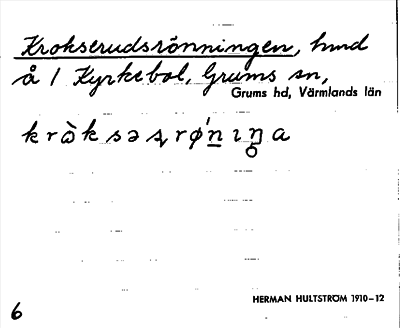 Krokserudsrönningen, hmd
å 1 Kyrkebol, Grums sn,
Grums hd, Värmlands län
krὼksəʂrǿn̲ ɩŋ̥a
HERMAN HULTSTRÖM 1910–12
6